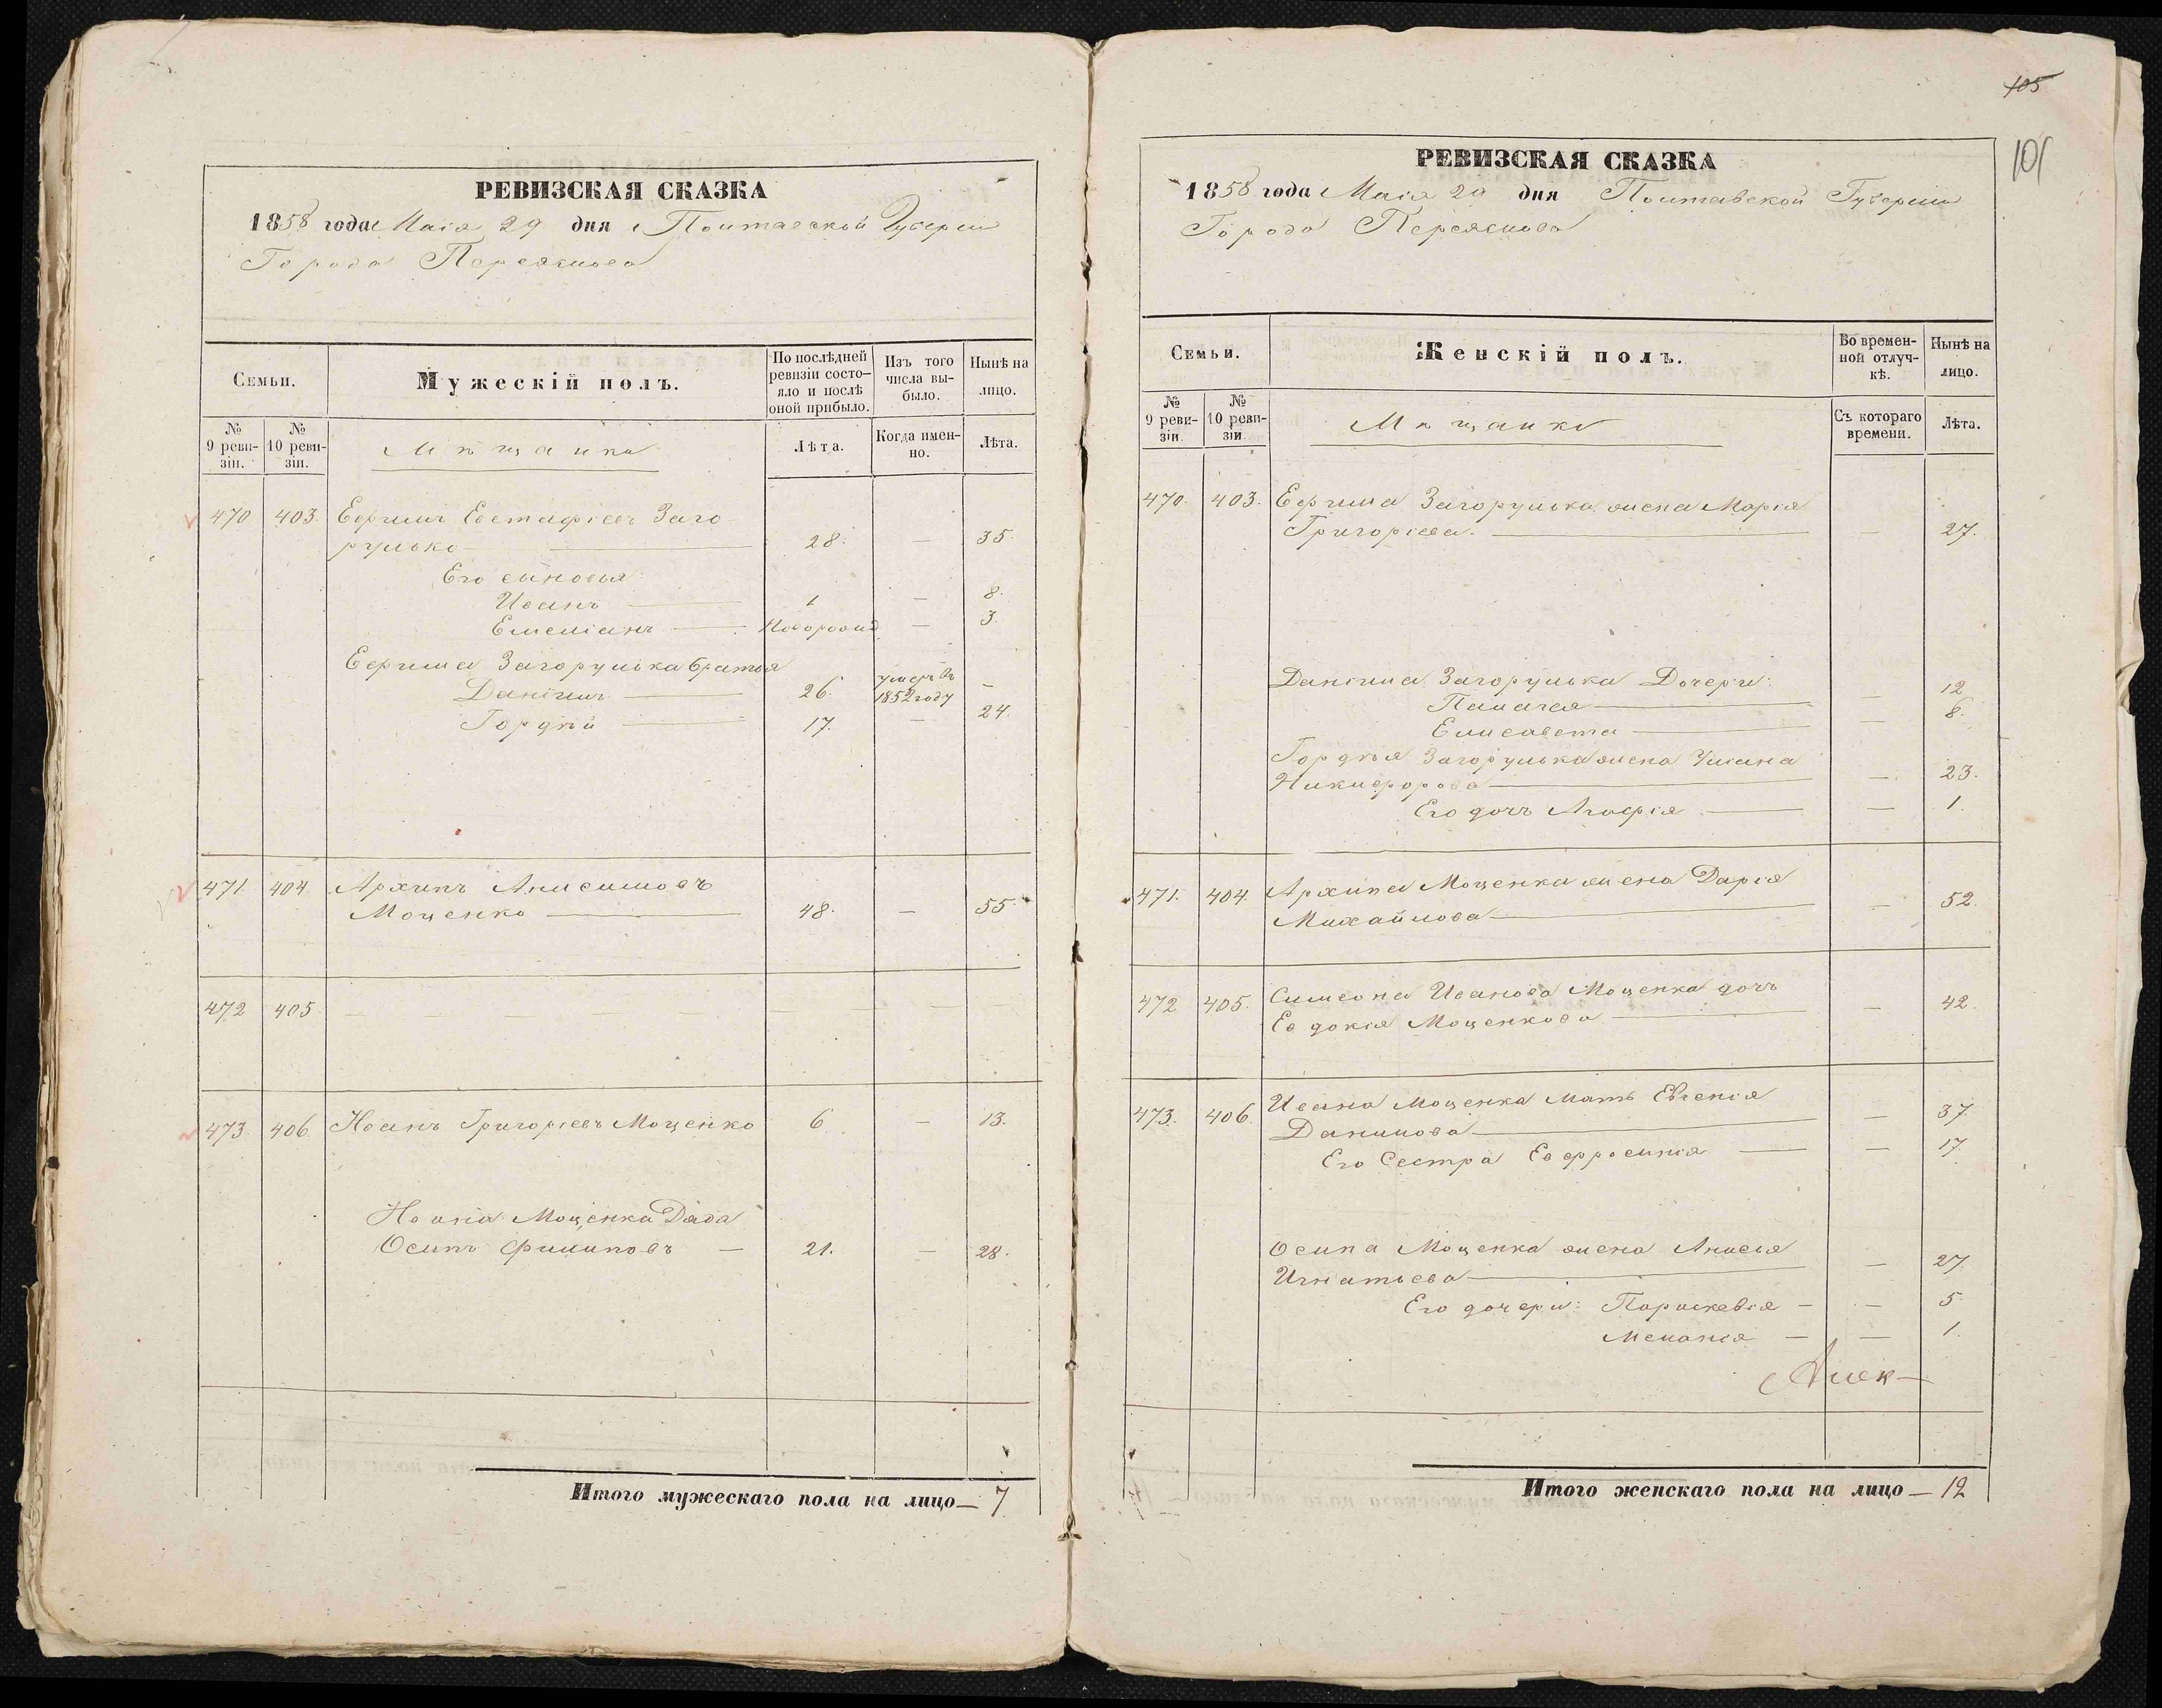 РЕВИЗСКАЯ СКАЗКА
1858 года Маія 29 дня Полтавской Губерніи
Города Переяслова
Семьи.
Мужескій полъ.
По послѣдней ревизіи состо-
яло и послѣ
оной прибыло.
Изъ того
числа вы-
было.
Нынѣ на
лицо.
№
9 реви-
зіи.
№
10 реви-
зіи.
Мѣщане
Лѣта.
Когда имен-
но.
Лѣта.
470 403. Ефимъ Евстафіевъ Заго-
рулько 28. — 35.
Его сыновья
Иванъ 1 — 8.
Емеліанъ Новорожд — 3.
Ефима Загорулька братья
Даніилъ 26. умеръ въ 1852 году —
Гордѣй 17. — 24.
471 404. Архипъ Анисимовъ
Моценко 48. — 55.
472 405 — — — — — — — — —
473. 406. Иванъ Григоріевъ Моценко 6 — 13.
Ивана Моценка Дядя
Осипъ Филиповъ — 21. — 28.
Итого мужескаго пола на лицо — 7
105
101
РЕВИЗСКАЯ СКАЗКА
1858 года Маія 29 дня Полтавской Губерніи
Города Переяслова
Семьи.
Женскій полъ.
Во времен-
ной отлуч-
кѣ.
Нынѣ на
лицо.
№
9 реви-
зіи.
№
10 реви-
зіи.
Мѣщанки
Съ котораго
времени.
Лѣта.
470. 403. Ефима Загорулька жена Марія
Григоріева. — 27.
Даніила Загорулька Дочери:
Палагея — 12
Елисавета — 8.
Гордѣя Загорулька жена Уліана
Никифорова — 23.
Его дочь Агафія — 1.
471. 404. Архипа Моценка жена Дарія
Михайлова — 52.
472 405. Симеона Иванова Моценка дочь
Евдокія Моценкова — 42.
473. 406. Ивана Моценка Мать Евгенія
Данилова — 37.
Его Сестра Евфросинія — 17.
Осипа Моценка жена Анисья
Игнатьева — 27.
Его дочери: Параскевія — — 5
Меланія — — 1.
Алек-
Итого женскаго пола на лицо — 12